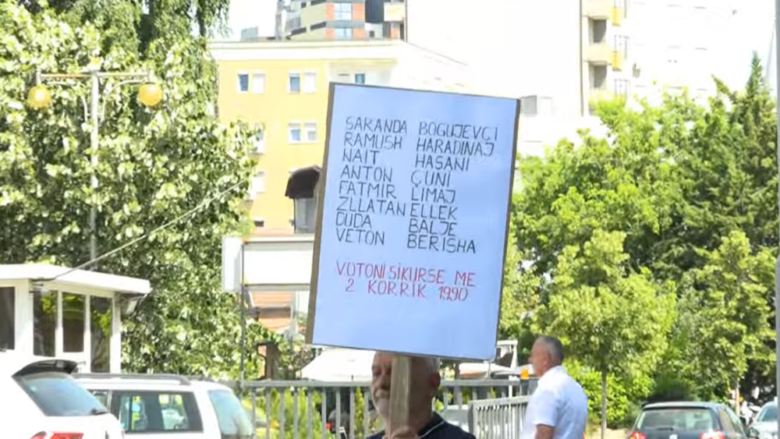 SARANDA BOGUJEVCI
RAMUSH HARADINAJ
NAIT HASANI
ANTON ÇUNI
FATMIR LIMAJ
ZLLATAN ELLEK
DUDA BALJE
VETON BERISHA
VOTONI SIKURSE ME
2 KORRIK 1990